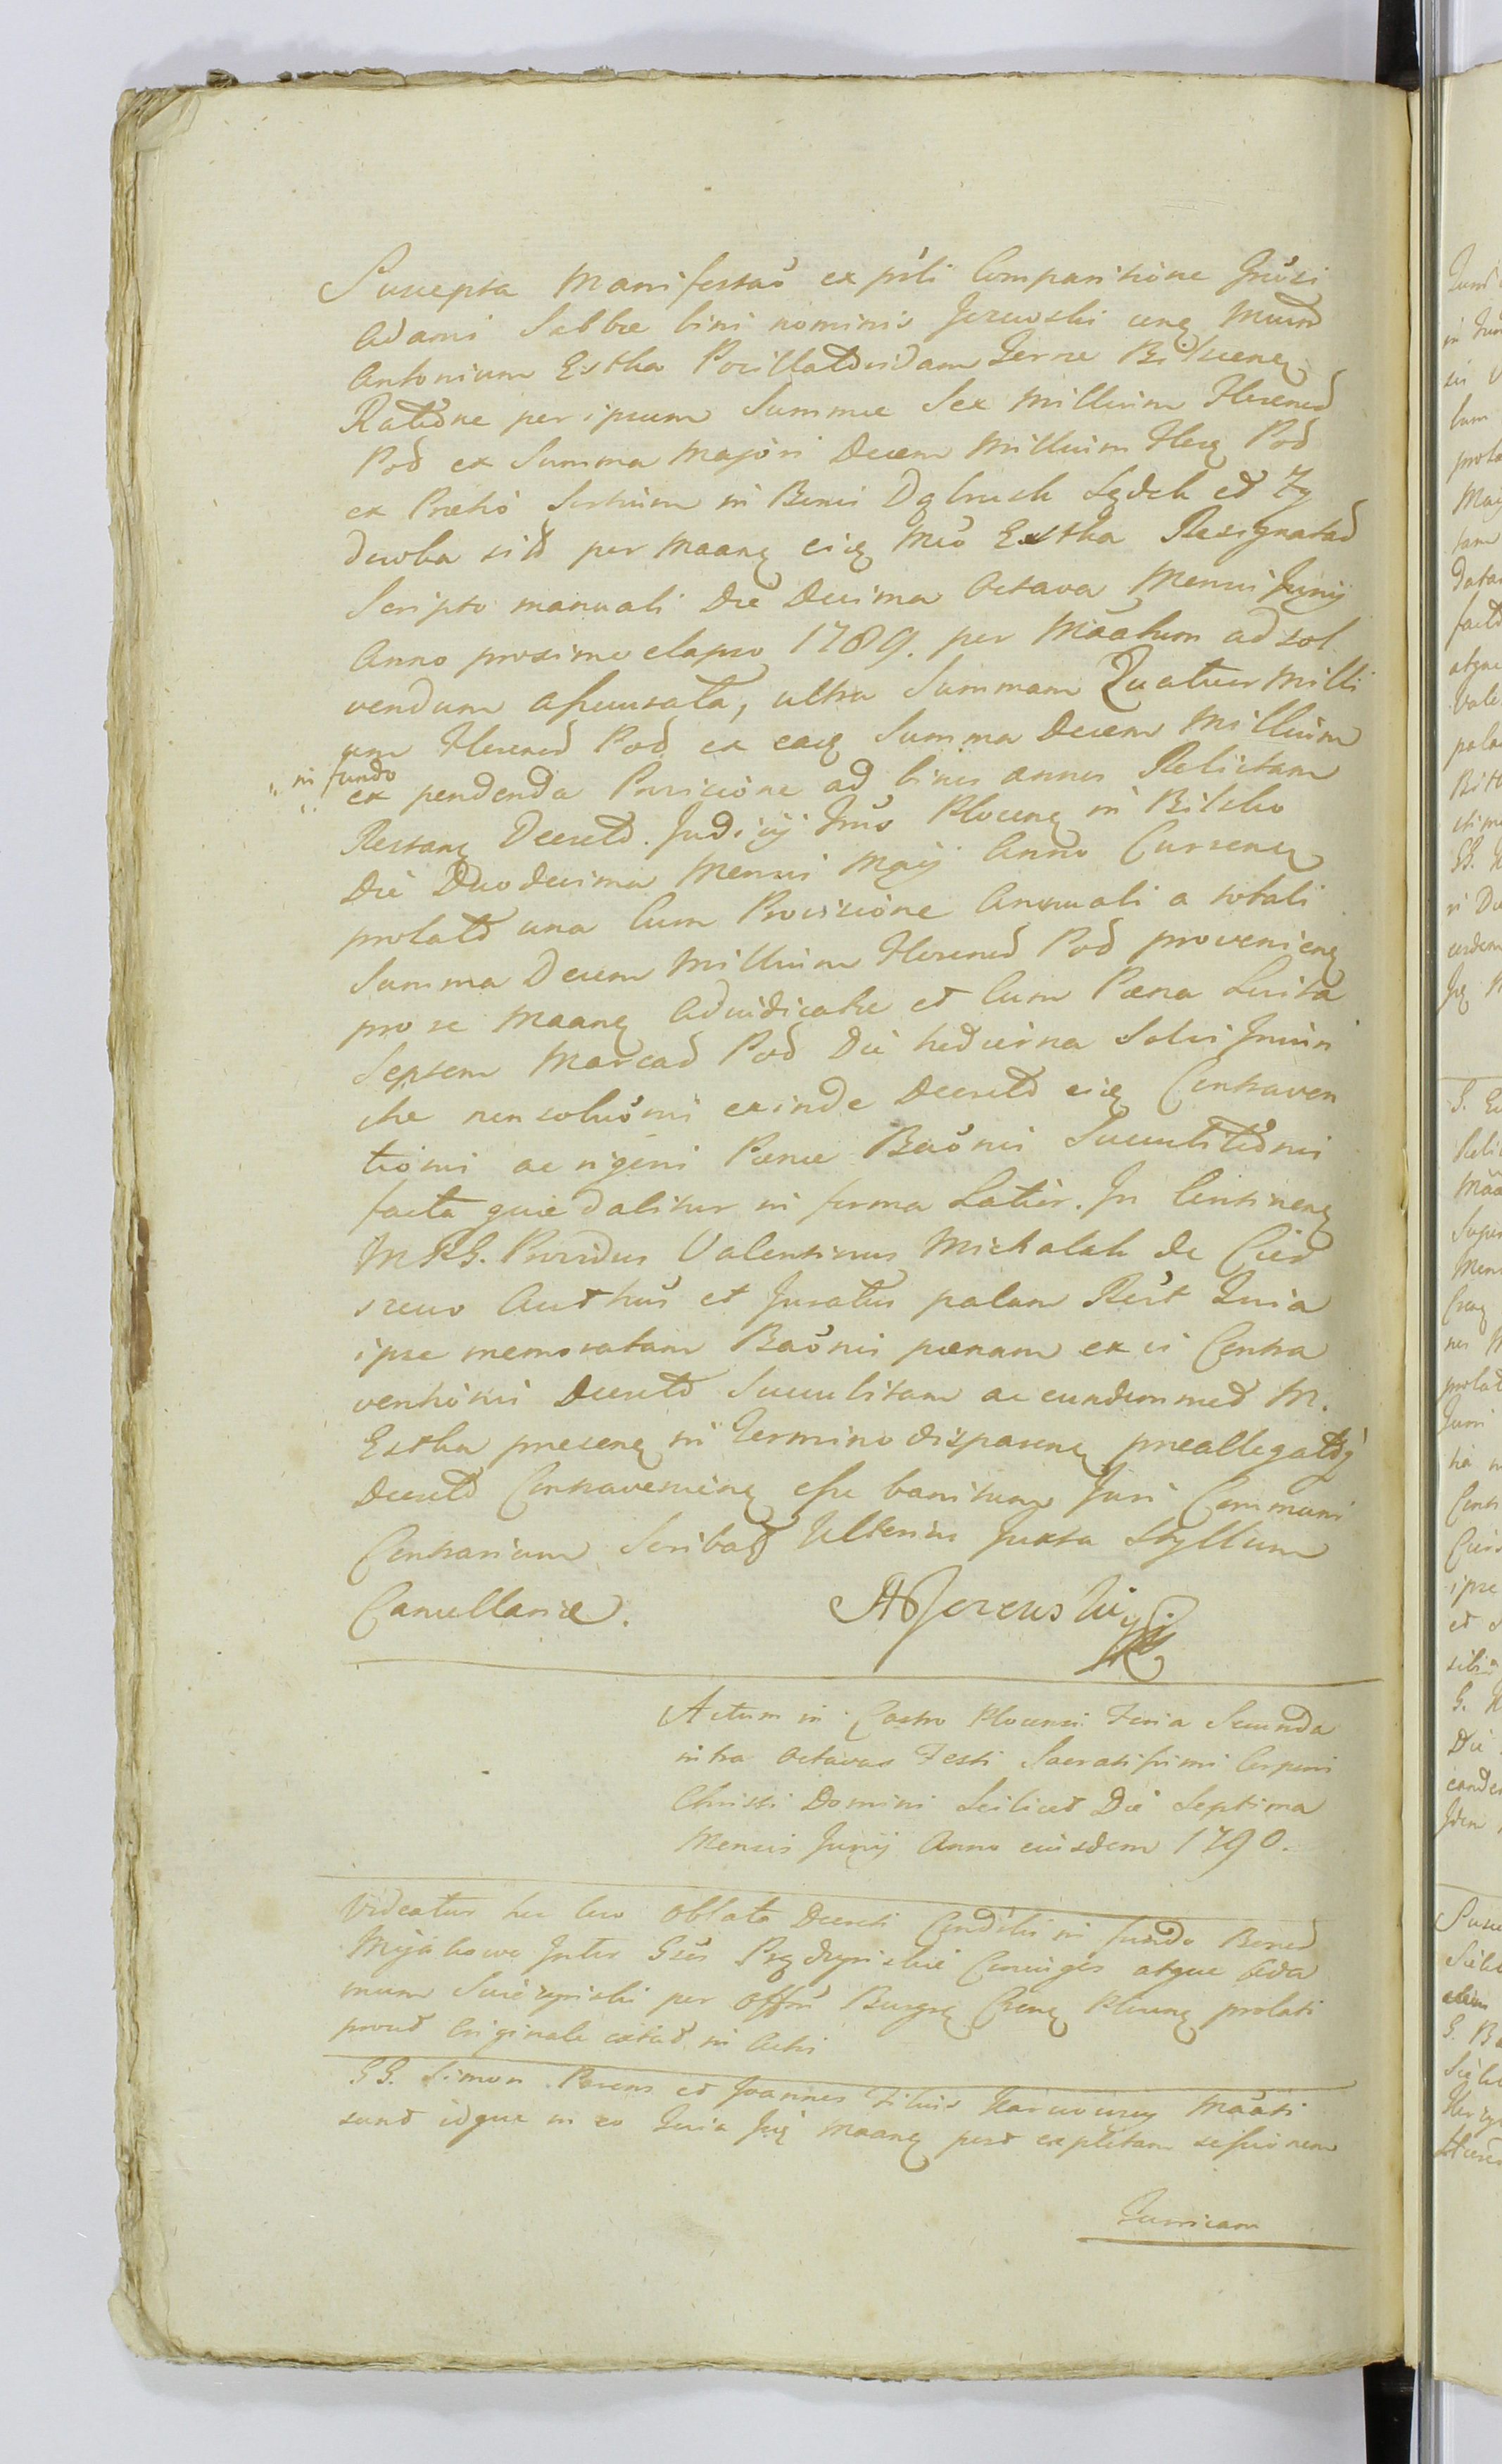 Suscepta Manifestaõ ex pñti Comparitione Gñosi
Adami Sabbæ bini nominis Jezewski cung Mcum
Antonium Estka Pocillatoridam Terræ Bielscenę
Ratione per ipsum Summæ Sex Millium Florenoꝝ
Pol ex Summa majori Decem Millium Florę Pol
ex Prætio Sortium in Bonis Dąbrusk Sędek et Zy
dowka sit per Maanę eię Mco Estka Resignatað
Scripto manuali Die Decima Octava Mensis Junij
Anno proxime elapso 1789. per Mãatum ad sol
vendum assecurata, ultra Summam Quatuor Milli
um Floreno Pol ex eaę Summa Decem Millium
„ in fundo
ex pendenda Provisione ad binis annis Relictam
Restanę Decreto. Judicij Trrõ Plocenę in Bilsko
Die Duodecima Mensis Maij Anno Currenę
prolato una Cum Provisione Annuali a totali
Summa Decem Millium Floreno Pol provenienę
pro se Maanę Adjudicatæ et Cum Pæna Luita
Septem Marcað Pol Die hodierna Solvi Injun
ctæ non solutõnis exinde Decreto eię Contraven
tionis ac rigoris Pænæ Baõnis Succubitionis
facta quæ dabitur in forma Latior. In Continenę
MRG. Providus Valentinus Michalak de Cies
szewo Authus et Juratus palam Recõt Quia
ipse memoratam Baõnis pænam ex vi Contra
ventionis Decreto Succubitam ac eundemmet M.
Estka presenę in Termino disparenę preallegatoꝝ
Decreto Contravenienę esse banitum Juri Communi
Contrarium Scribat Ulterius Juxta Styllum
Cancellariæ. A Jezewski
Actum in Castro Plocensi Feria Secunda
intra Octavas Festi Sacratissimi Corporis
Christi Domini Scilicet Die Septima
Mensis Junij Anno eiusdem 1790.
Videatur hic loco Oblata Decreti Condictis in fundo Bonoꝝ
Mijakowo Inter Gsos Prądzynskie Conjuges atque Ada
mum Swierzynski per Offm Burgrę Crenę Plocenę prolati
prout Originale extat in Actis
GG. Simon Parens et Joannes Filius Karwowscy Mãati
sunt idque in eo Quia Ipi Maanę post expletam sessionem
Jurricam